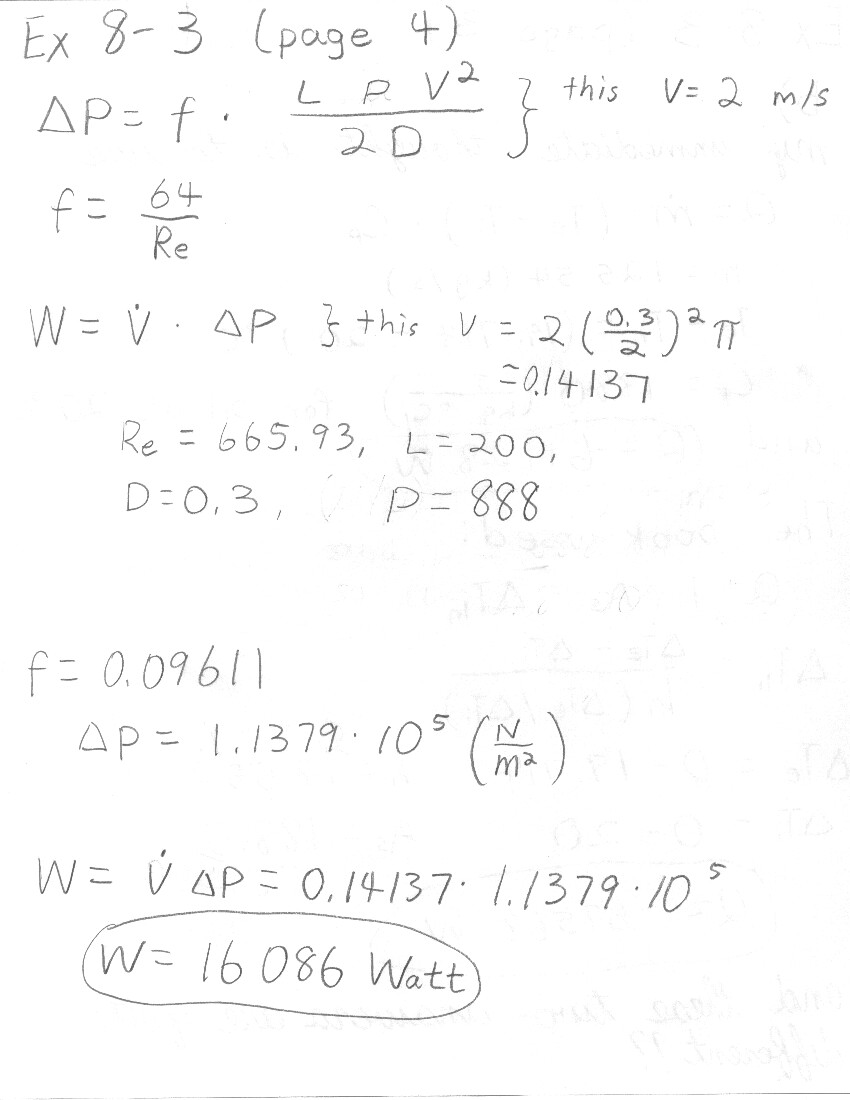 Ex 8-3 (page 4)
ΔP = f · L ρ V² / 2D } this V = 2 m/s
f = 64 / Re
W = V̇ · ΔP } this V = 2 (0.3/2)² π
= 0.14137
Re = 665.93, L = 200,
D = 0.3, ρ = 888
f = 0.09611
ΔP = 1.1379 · 10⁵ (N/m²)
W = V̇ ΔP = 0.14137 · 1.1379 · 10⁵
W = 16 086 Watt